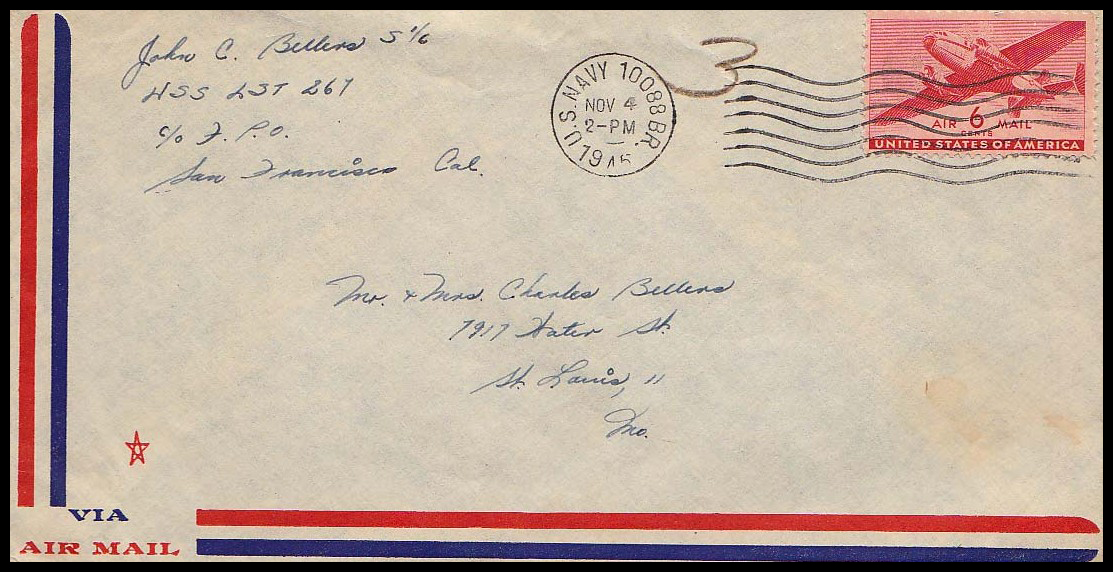 John C. Bellers S 1/c
USS LST 267
c/o F. P.O.
San Francisco Cal.
U.S. NAVY 10088 BR.
NOV 4
2-PM
1945
3
AIR 6 MAIL
CENTS
UNITED STATES OF AMERICA
Mr. & Mrs. Charles Bellers
7917 Water St.
St. Louis, 11
Mo.
VIA
AIR MAIL